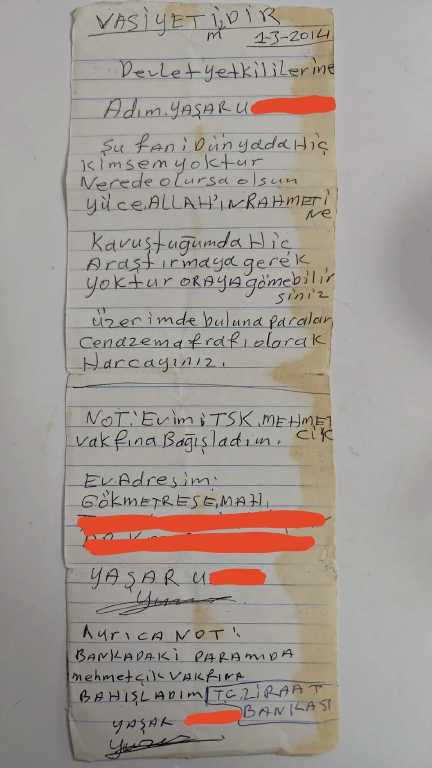 VASİYETİMDİR
1-3-2014
Devlet yetkililerine
Adım. YAŞAR U
Şu fani Dünyada Hiç
kimsem yoktur
Nerede olursa olsun
yüce, ALLAH'IN RAHMETİ
NE
Kavuştuğumda Hiç
Araştırmaya gerek
yoktur ORAYA gömebilir
siniz
üzerimde buluna paralar
cenazema frafı olarak
Harcayınız.
NOT: Evimi TSK. MEHMET
CİK
vakfına Bağışladım.
Ev Adresim:
GÖKMETRESE, MAH.
YAŞAR U
Ayrıca NOT:
BANKADAKİ PARAMIDA
mehmetçik VAKFINA
BAHIŞLADIM T.C. ZİRAAT
BANKASI
YAŞAR